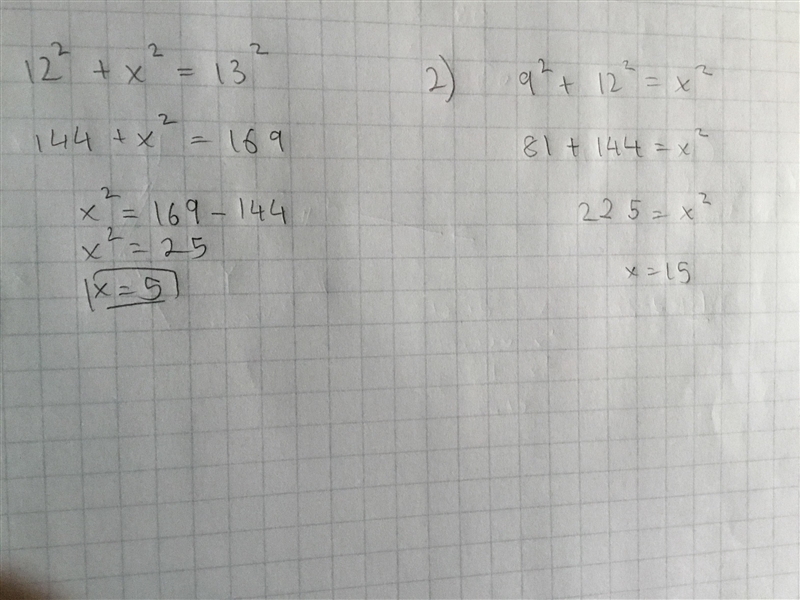 12² + x² = 13²
144 + x² = 169
x² = 169 - 144
x² = 25
x = 5
2) 9² + 12² = x²
81 + 144 = x²
225 = x²
x = 15